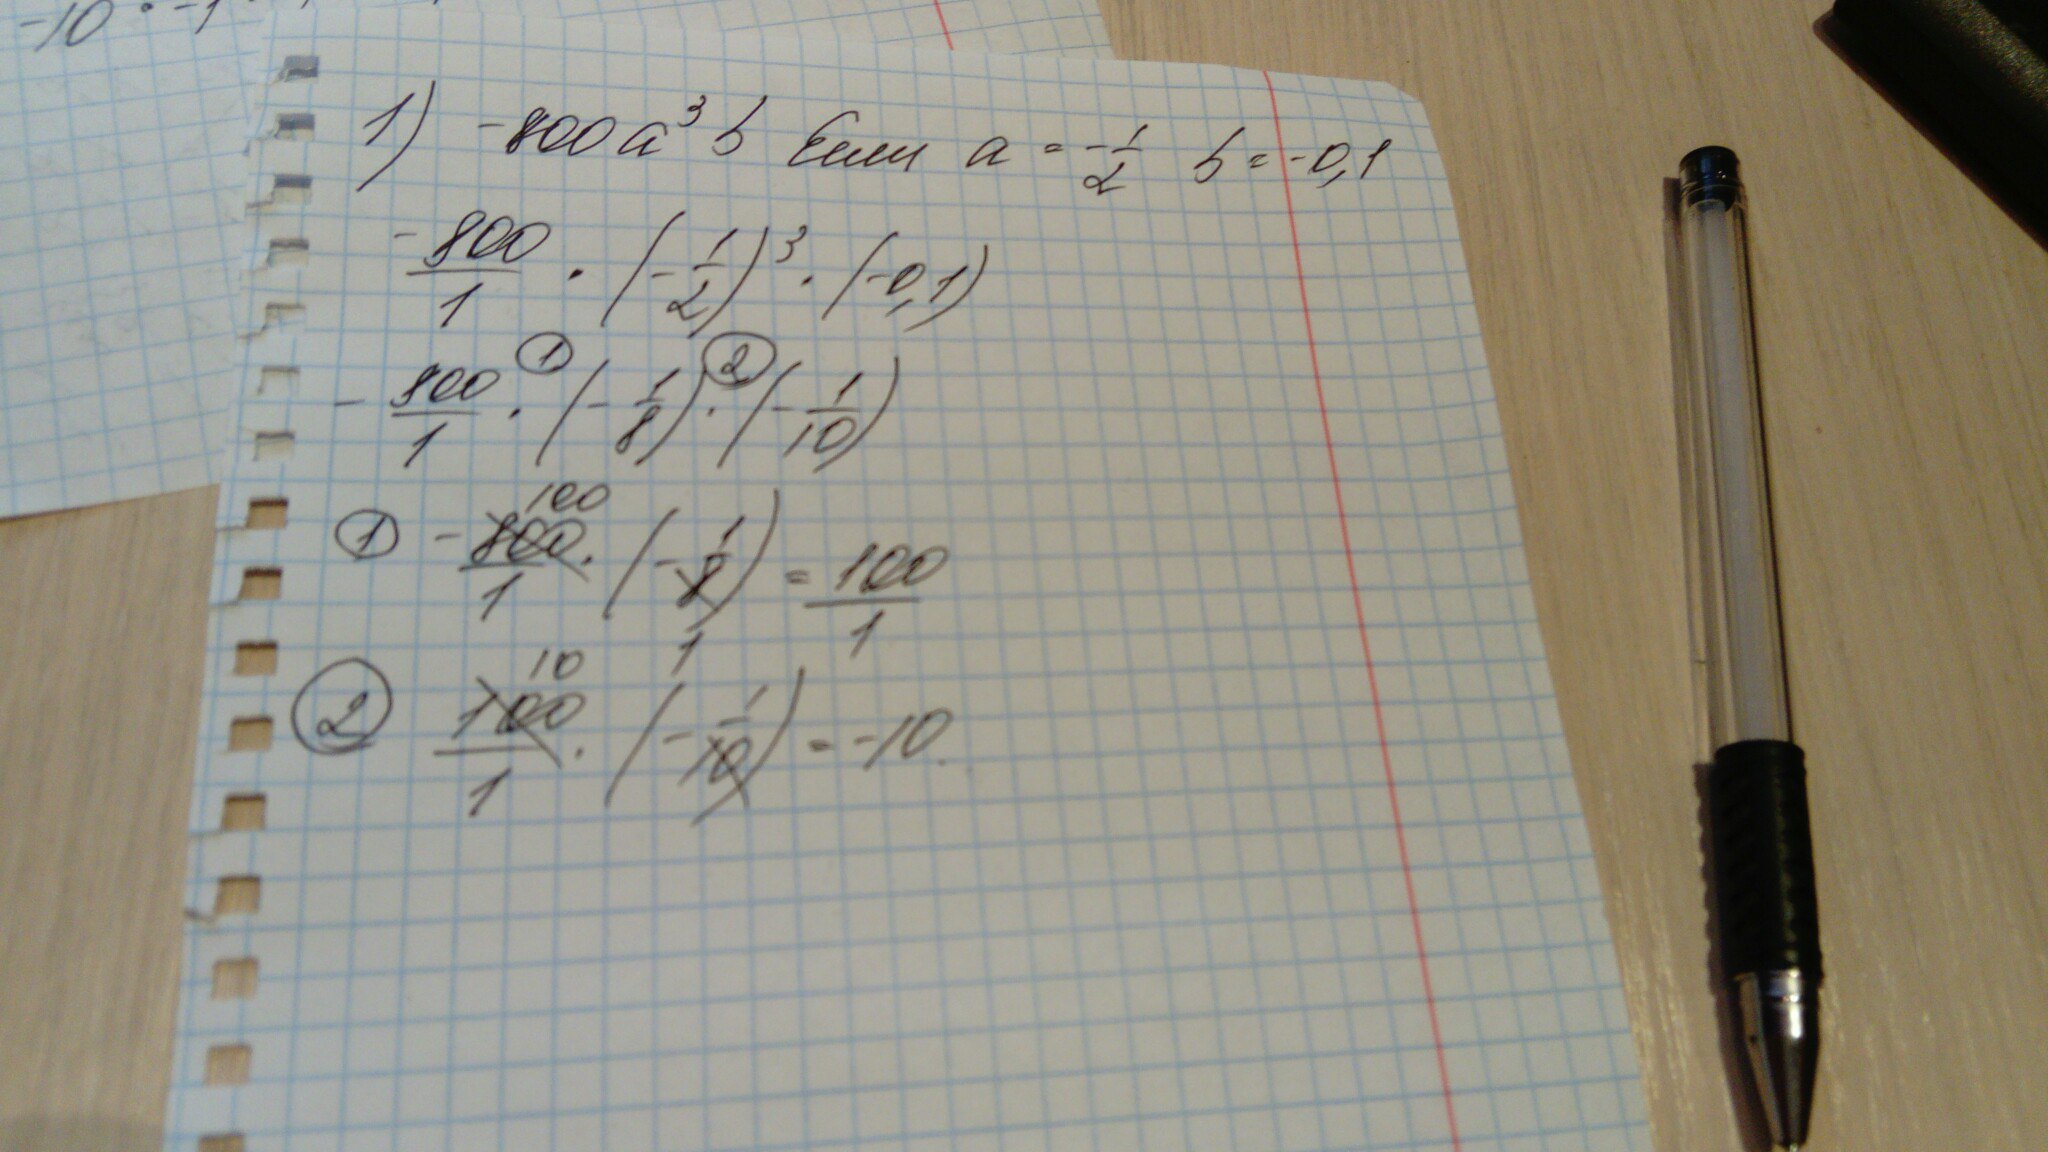 -10 · -1
1) -800a³b Если a = -1/2 b = -0,1
-800/1 · (-1/2)³ · (-0,1)
① ②
- 800/1 · (-1/8) · (-1/10)
100
① -800/1 · (-1/8) = 100/1
1
10
② 100/1 · (-1/10) = -10.